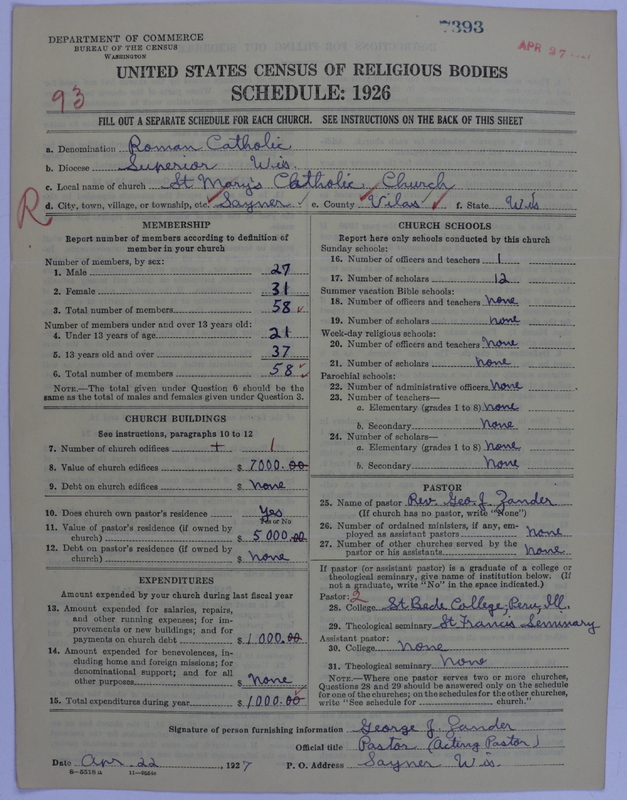 7393
APR 27
DEPARTMENT OF COMMERCE
BUREAU OF THE CENSUS
WASHINGTON
UNITED STATES CENSUS OF RELIGIOUS BODIES
93
SCHEDULE: 1926
FILL OUT A SEPARATE SCHEDULE FOR EACH CHURCH. SEE INSTRUCTIONS ON THE BACK OF THIS SHEET
a. Denomination Roman Catholic
b. Diocese Superior Wis.
c. Local name of church St Mary's Catholic Church
R
d. City, town, village, or township, etc. Sayner e. County Vilas f. State Wis
MEMBERSHIP
Report number of members according to definition of
member in your church
Number of members, by sex:
1. Male 27
2. Female 31
3. Total number of members 58
Number of members under and over 13 years old:
4. Under 13 years of age 21
5. 13 years old and over 37
6. Total number of members 58
NOTE.—The total given under Question 6 should be the
same as the total of males and females given under Question 3.
CHURCH BUILDINGS
See instructions, paragraphs 10 to 12
7. Number of church edifices + 1
8. Value of church edifices $ 7000.00
9. Debt on church edifices $ None
10. Does church own pastor's residence Yes
Yes or No
11. Value of pastor's residence (if owned by
church) $ 5000.00
12. Debt on pastor's residence (if owned by
church) $ None
EXPENDITURES
Amount expended by your church during last fiscal year
13. Amount expended for salaries, repairs,
and other running expenses; for im-
provements or new buildings; and for
payments on church debt $ 1000.00
14. Amount expended for benevolences, in-
cluding home and foreign missions; for
denominational support; and for all
other purposes $ None
15. Total expenditures during year $ 1000.00
CHURCH SCHOOLS
Report here only schools conducted by this church
Sunday schools:
16. Number of officers and teachers 1
17. Number of scholars 12
Summer vacation Bible schools:
18. Number of officers and teachers None
19. Number of scholars none
Week-day religious schools:
20. Number of officers and teachers None
21. Number of scholars none
Parochial schools:
22. Number of administrative officers None
23. Number of teachers—
a. Elementary (grades 1 to 8) None
b. Secondary None
24. Number of scholars—
a. Elementary (grades 1 to 8) None
b. Secondary None
PASTOR
25. Name of pastor Rev. Geo. J. Zander
(If church has no pastor, write "None")
26. Number of ordained ministers, if any, em-
ployed as assistant pastors none
27. Number of other churches served by the
pastor or his assistants none
If pastor (or assistant pastor) is a graduate of a college or
theological seminary, give name of institution below. (If
not a graduate, write "No" in the space indicated.)
Pastor: 2
28. College St Bede College, Peru, Ill.
29. Theological seminary St Francis Seminary
Assistant pastor:
30. College None
31. Theological seminary None
NOTE.—Where one pastor serves two or more churches,
Questions 28 and 29 should be answered only on the schedule
for one of the churches; on the schedules for the other churches,
write "See schedule for ........ church."
Signature of person furnishing information George J. Zander
Official title Pastor (Acting Pastor)
Date Apr 22, 1927 P. O. Address Sayner Wis.
8-5518a